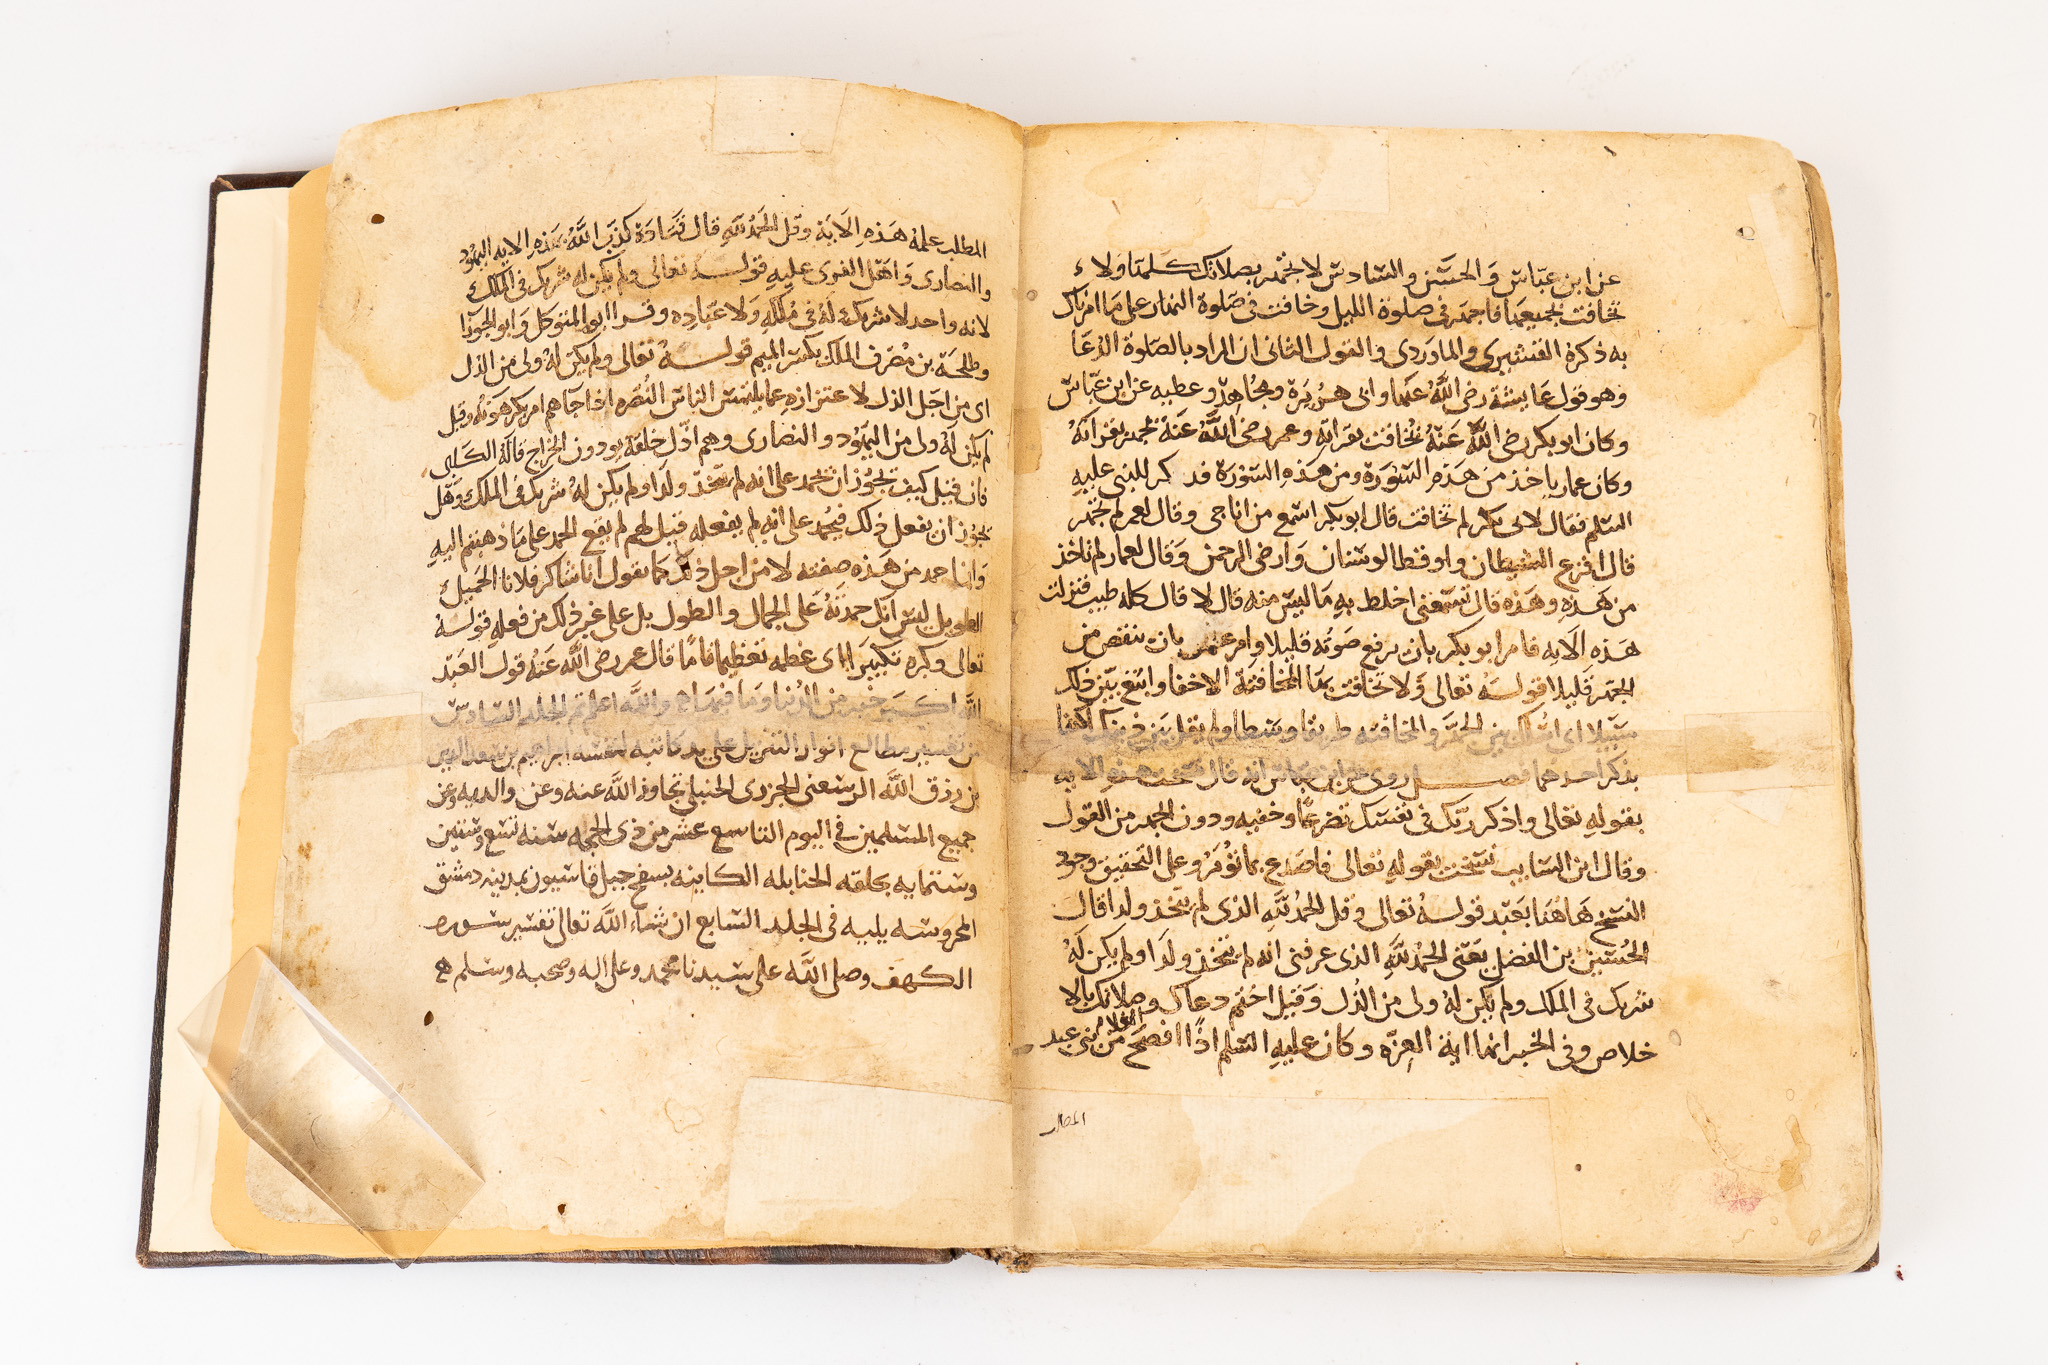 عن ابن عباس والحسن والسادس لا تجهر بصلاتك كلها ولا
تخافت بجميعها فاجهر في صلوة الليل وخافت في صلوة النهار على ما امرناك
به ذكره القشيري والماوردي والقول الثاني ان المراد بالصلوة الدعا
وهو قول عايشة رضي الله عنها وابي هريرة ومجاهد وعطيه عن ابن عباس
وكان ابو بكر رضي الله عنه يخافت بقراته وعمر رضي الله عنه يجهر بقراته
وكان عمار ياخذ من هذه السورة ومن هذه السورة فذكر للنبي عليه
السلم فقال لابي بكر لم تخافت قال ابو بكر اسمع من اناجي وقال لعمر لم تجهر
قال افزع الشيطان واوقظ الوسنان وارضي الرحمن وقال لعمار لم تاخذ
من هذه وهذه قال تسمعني اخلط به ما ليس منه قال لا قال كله طيب فنزلت
هذه الايه فامر ابو بكر بان يرفع صوته قليلا وامر عمر بان ينقص من
الجهر قليلا قوله تعالى ولا تخافت بها المخافتة الاخفا وابتغ بين ذلك
سبيلا اى اسلك بين الجهر والمخافته طريقا وسطا ولم يقل بين ذينك اكتفا
بذكر احدهما فصل روى عن ابن عباس انه قال نسخت هذه الايه
بقوله تعالى واذكر ربك في نفسك تضرعا وخفيه ودون الجهر من القول
وقال ابن السايب نسخت بقوله تعالى فاصدع بما تؤمر وعلى التحقيق وجود
النسخ هاهنا بعيد قوله تعالى وقل الحمد لله الذي لم يتخذ ولدا قال
الحسين بن الفضل يعنى الحمد لله الذي عرفني انه لم يتخذ ولدا ولم يكن له
شريك في الملك ولم يكن له ولى من الذل وقيل اختم دعاك وصلاتك بالا
خلاص وفي الخبر انها اية العزه وكان عليه السلم اذا افصح الغلام من بني عبد
المطلب
المطلب علمه هذه الاية وقل الحمد لله قال قتادة كذب الله بهذه الايه اليهود
والنصارى واهل الفرى عليه قوله تعالى ولم يكن له شريك في الملك
لانه واحد لا شريك له في ملكه ولا عباده وقرا ابو المتوكل وابو الجوزا
وطلحة بن مصرف الملك بكسر الميم قوله تعالى ولم يكن له ولي من الذل
اى من اجل الذل لا عتزازه عما يلتمس الناس النصره اذا جآهم امر يكرهونه وقيل
لم يكن له ولى من اليهود والنصارى وهم اذل خلقه يودون الخراج قاله الكلبى
فان قيل كيف يجوز ان يحمد على انه لم يتخذ ولدا ولم يكن له شريك في الملك وهل
يجوز ان يفعل ذلك فيحمد على انه لم يفعله قيل لهم لم يقع الحمد على ما ذهبتم اليه
وانما حمد من هذه صفته لا من اجل ذلك كما يقول انا شاكر فلانا الجميل
الطويل ليس انك حمدته على الجمال والطول بل على غير ذلك من فعله قوله
تعالى وكبره تكبيرا اى عظمه تعظيما تاما قال عمر رضي الله عنه قول العبد
الله اكبر خير من الدنيا وما فيها والله اعلم تم الجلد السادس
من تفسير مطالع انوار التنزيل على يد كاتبه لنفسه ابراهيم بن سعد الله
بن رزق الله الرسعني الجزري الحنبلي تجاوز الله عنه وعن والديه وعن
جميع المسلمين في اليوم التاسع عشر من ذي الحجه سنه تسع وستين
وستمايه بحلقه الحنابله الكاينه بسفح جبل قاسيون بمدينه دمشق
المحروسه يليه في الجلد السابع ان شاء الله تعالى تفسير سوره
الكهف وصلى الله على سيدنا محمد وعلى اله وصحبه وسلم